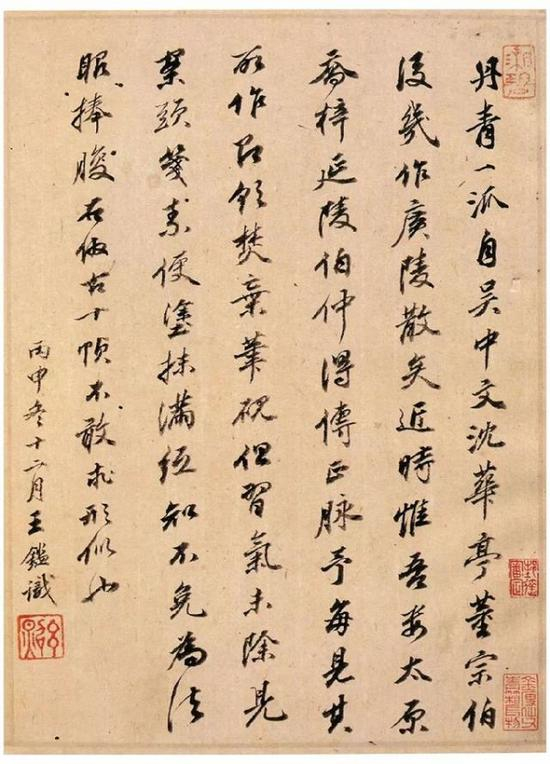 丹青一派自吴中文沈華亭董宗伯
後幾作廣陵散矣近時惟吾婁太原
喬梓延陵伯仲得傳正脉予每見其
所作且欲焚棄筆硯但習氣未除見
案頭箋素便塗抹滿紙知不免為法
眼捧腹右倣古十幀不敢求形似也
丙申冬十二月王鑑識